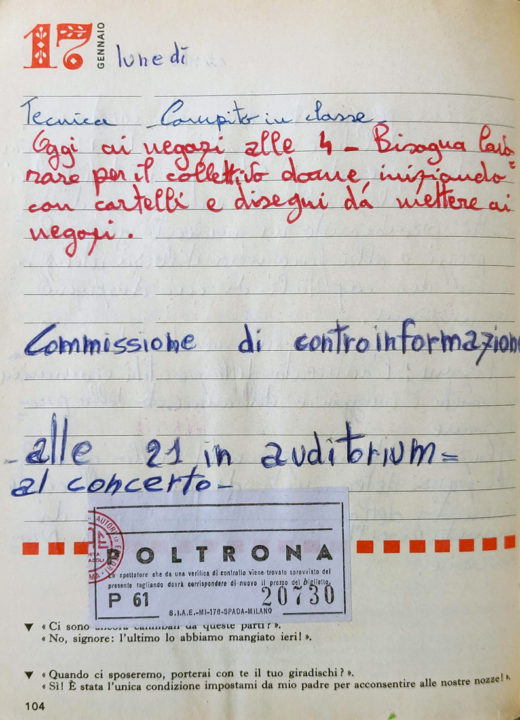 17
GENNAIO
lunedì
Tecnica Compito in classe
Oggi ai negozi alle 4 - Bisogna lavo=
rare per il collettivo donne, iniziando
con cartelli e disegni da mettere ai
negozi.
Commissione di controinformazione
- alle 21 in auditorium =
al concerto -
POLTRONA
Lo spettatore che da una verifica di controllo viene trovato sprovvisto del
presente tagliando dovrà corrispondere di nuovo il prezzo del biglietto.
P 61
20730
S.I.A.E.-MI-178-SPADA-MILANO
▼ « Ci sono ancora cannibali da queste parti? ».
« No, signore: l'ultimo lo abbiamo mangiato ieri! ».
▼ « Quando ci sposeremo, porterai con te il tuo giradischi? ».
« Sì! È stata l'unica condizione impostami da mio padre per acconsentire alle nostre nozze! ».
104